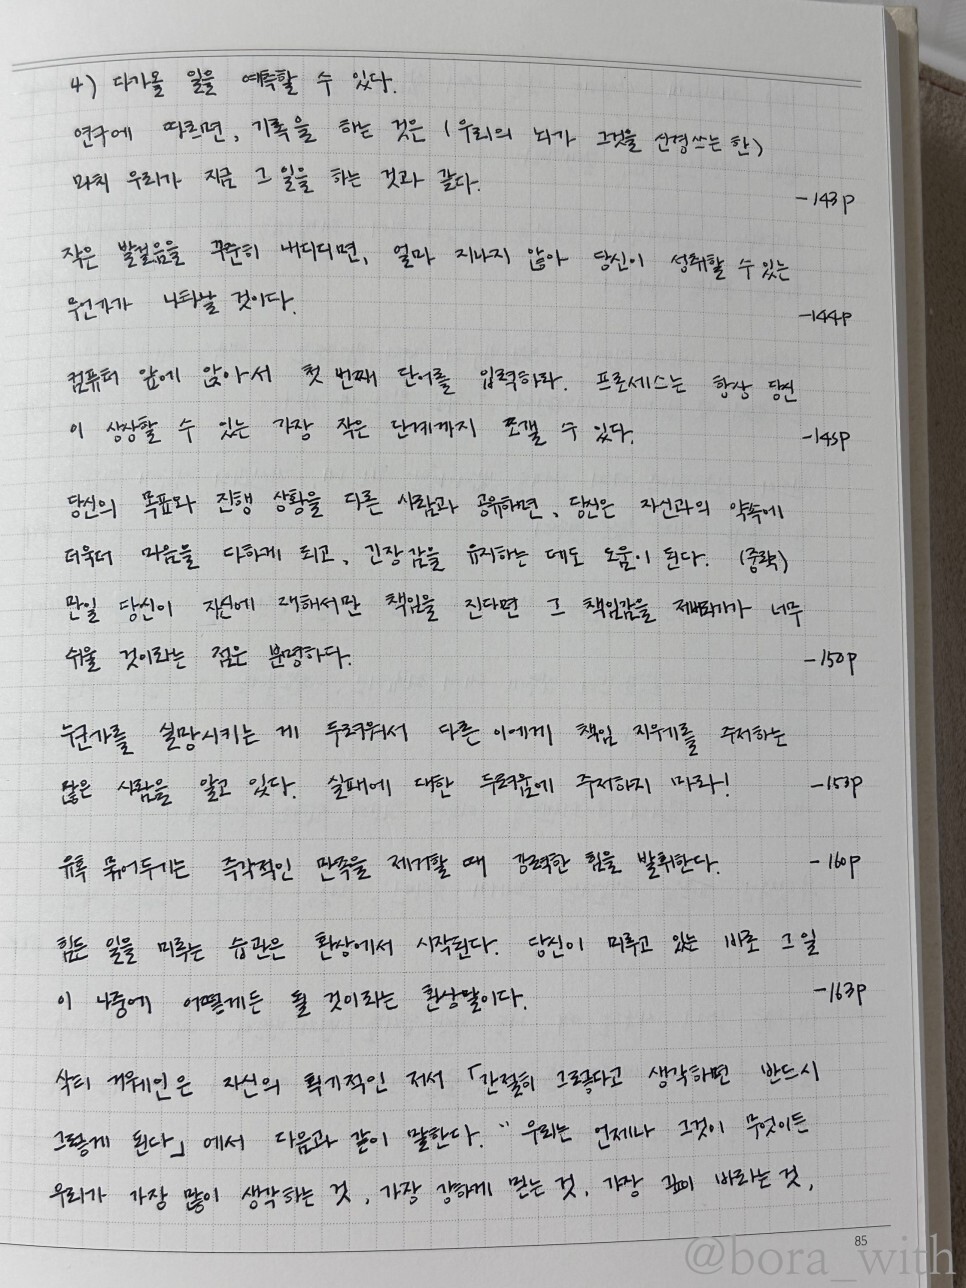 4) 다가올 일을 예측할 수 있다.
연구에 따르면, 기록을 하는 것은 (우리의 뇌가 그것을 신경쓰는 한)
마치 우리가 지금 그 일을 하는 것과 같다.
-143p
작은 발걸음을 꾸준히 내디디면, 얼마 지나지 않아 당신이 성취할 수 있는
무언가가 나타날 것이다.
-144p
컴퓨터 앞에 앉아서 첫 번째 단어를 입력하라. 프로세스는 항상 당신
이 상상할 수 있는 가장 작은 단계까지 쪼갤 수 있다.
-145p
당신의 목표와 진행 상황을 다른 사람과 공유하면, 당신은 자신과의 약속에
더욱더 마음을 다하게 되고, 긴장감을 유지하는 데도 도움이 된다. (중략)
만일 당신이 자신에 대해서만 책임을 진다면 그 책임감을 저버리기가 너무
쉬울 것이라는 점은 분명하다.
-150p
누군가를 실망시키는 게 두려워서 다른 이에게 책임 지우기를 주저하는
많은 사람을 알고 있다. 실패에 대한 두려움에 주저하지 마라!
-153p
유혹 묶어두기는 즉각적인 만족을 제거할 때 강력한 힘을 발휘한다.
-160p
힘든 일을 미루는 습관은 환상에서 시작된다. 당신이 미루고 있는 바로 그 일
이 나중에 어떻게든 될 것이라는 환상말이다.
-163p
삭티 거웨인은 자신의 획기적인 저서 「간절히 그렇다고 생각하면 반드시
그렇게 된다」에서 다음과 같이 말한다. "우리는 언제나 그것이 무엇이든
우리가 가장 많이 생각하는 것, 가장 강하게 믿는 것, 가장 깊이 바라는 것,
85
@bora_with